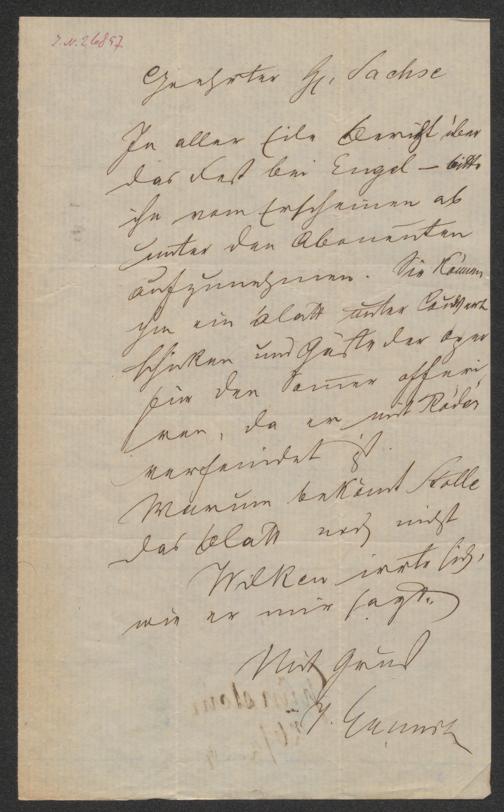 I. N. 26857
Geehrter H. Sachse
In aller Eile Bericht über
das Fest bei Engel – bitte
ihn vom Erscheinen ab
unter den Abonenten
aufzunehmen. Sie können
ihm ein Blatt unter Couvert
schicken und Gäste der Oper
für den Som̅er offeri
ren, da er mit Röder
verfeindet ist.
Warum bekom̅t Stolle
das Blatt noch nicht
Wilken irrte sich,
wie er mir sagt.
Mit Gruß